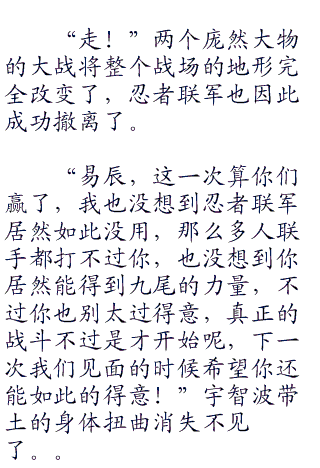 “走！”两个庞然大物
的大战将整个战场的地形完
全改变了，忍者联军也因此
成功撤离了。
“易辰，这一次算你们
赢了，我也没想到忍者联军
居然如此没用，那么多人联
手都打不过你，也没想到你
居然能得到九尾的力量，不
过你也别太过得意，真正的
战斗不过是才开始呢，下一
次我们见面的时候希望你还
能如此的得意！”宇智波带
土的身体扭曲消失不见
了。。